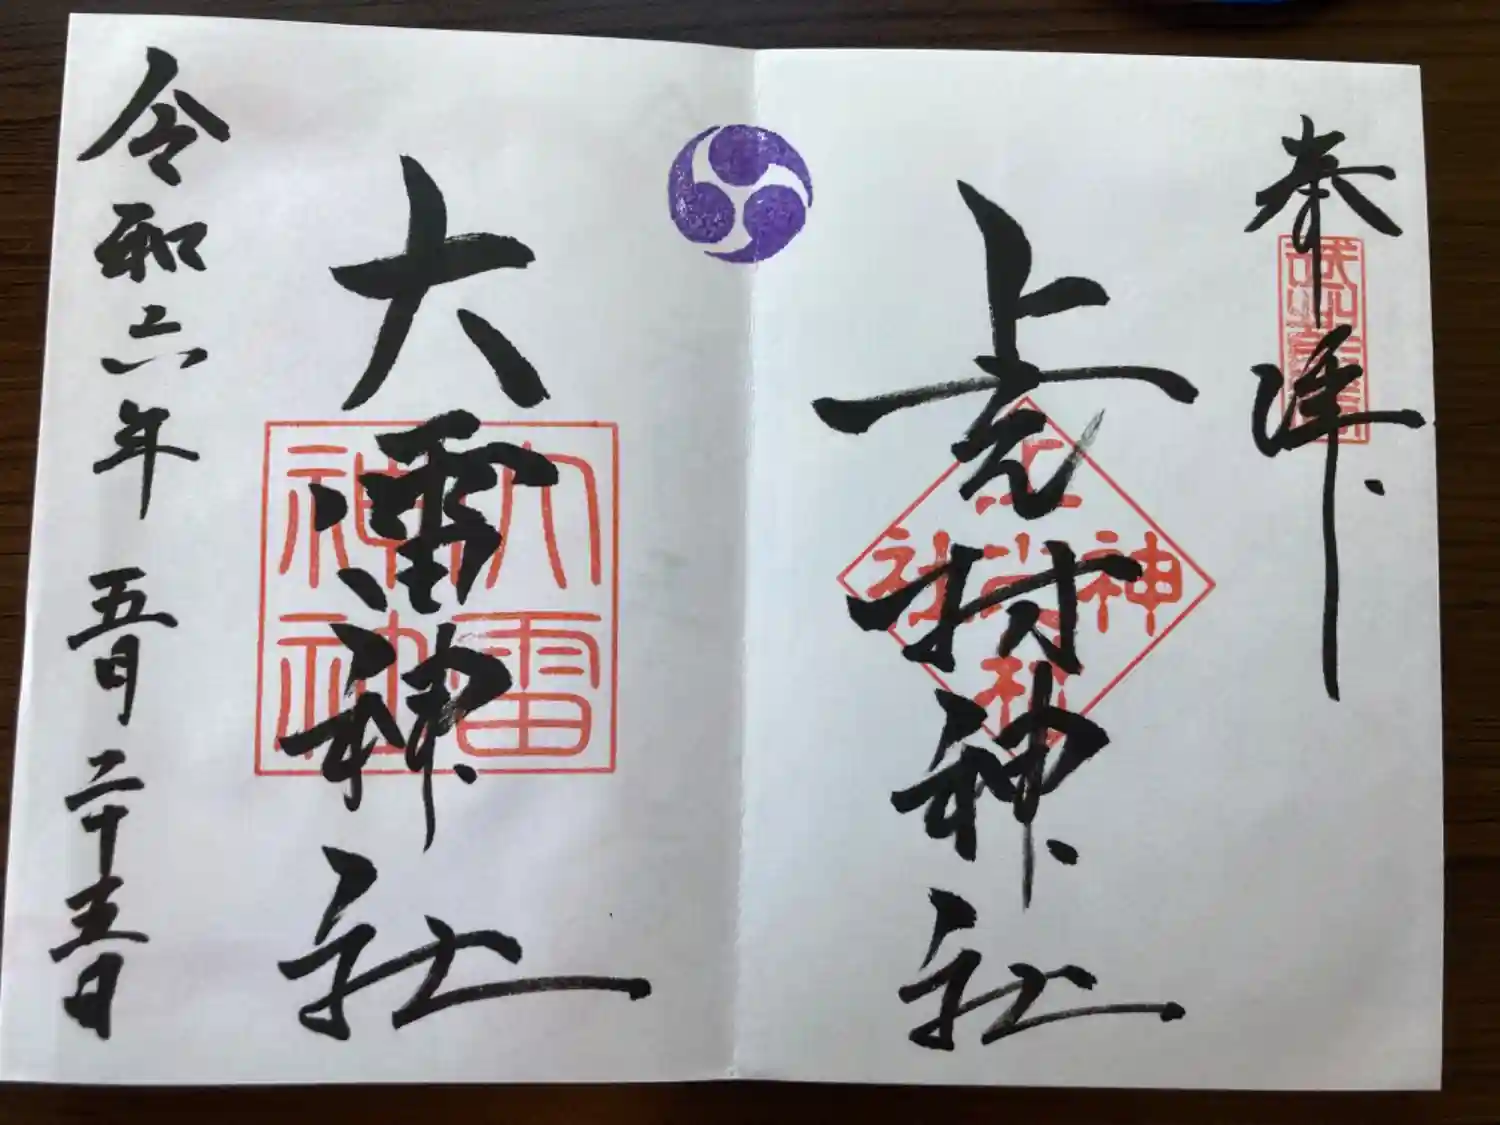 奉拝
上之村神社
上之村神社
大雷神社
大雷神社
令和六年五月二十五日